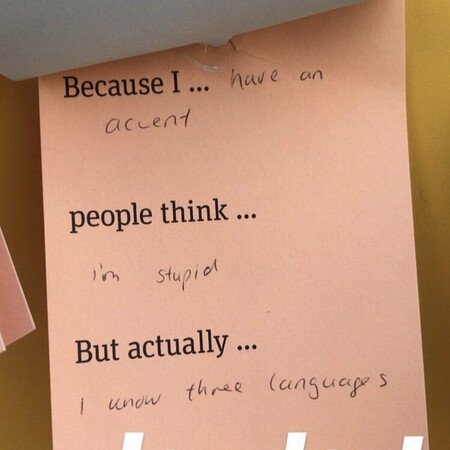 Because I ... have an
accent
people think ...
i'm stupid
But actually ...
I know three languages